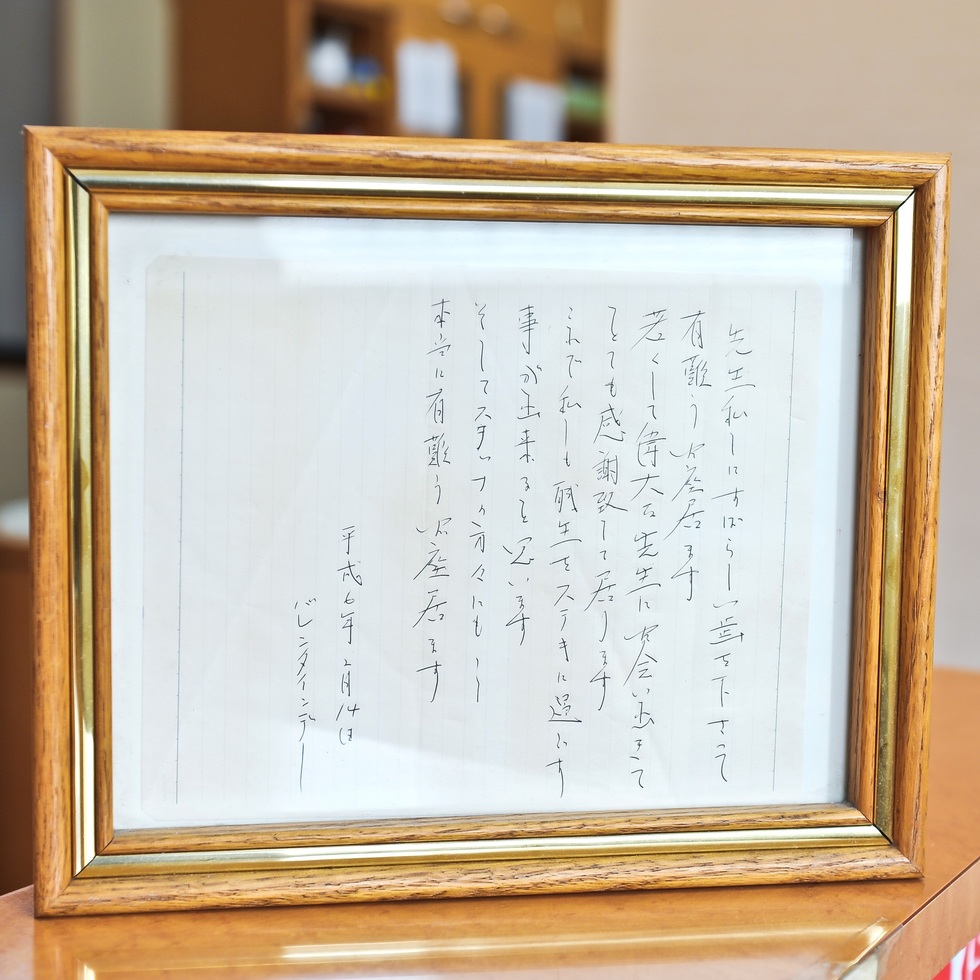 先生私しにすばらしい歯を下さって
有難う御座居ます
若くして偉大な先生に出会い出きて
とても感謝致して居ります
これで私しも残生をステキに過ごす
事が出来ると思います
そしてスタッフの方々にも
本当に有難う御座居ます
平成6年2月14日
バレンタインデー